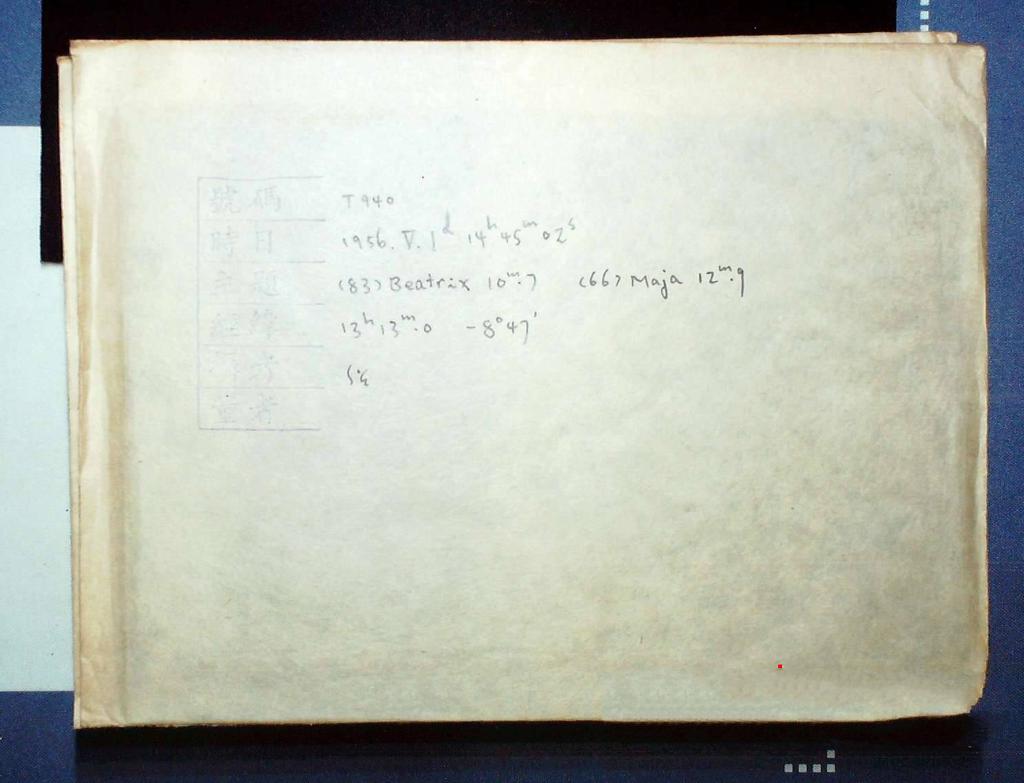 號碼 T940
時日 1956. V. 1ᵈ 14ʰ 45ᵐ 02ˢ
主題 (83) Beatrix 10ᵐ.7 (66) Maja 12ᵐ.9
經緯 13ʰ 13ᵐ.0 -8°47'